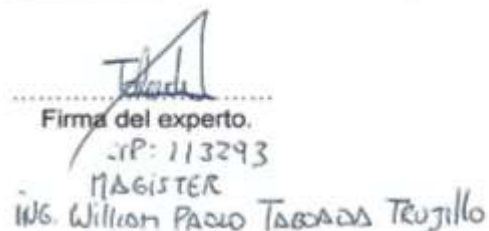 Firma del experto.
CIP: 113293
MAGISTER
ING. William PAOLO TABOADA TRUJillo